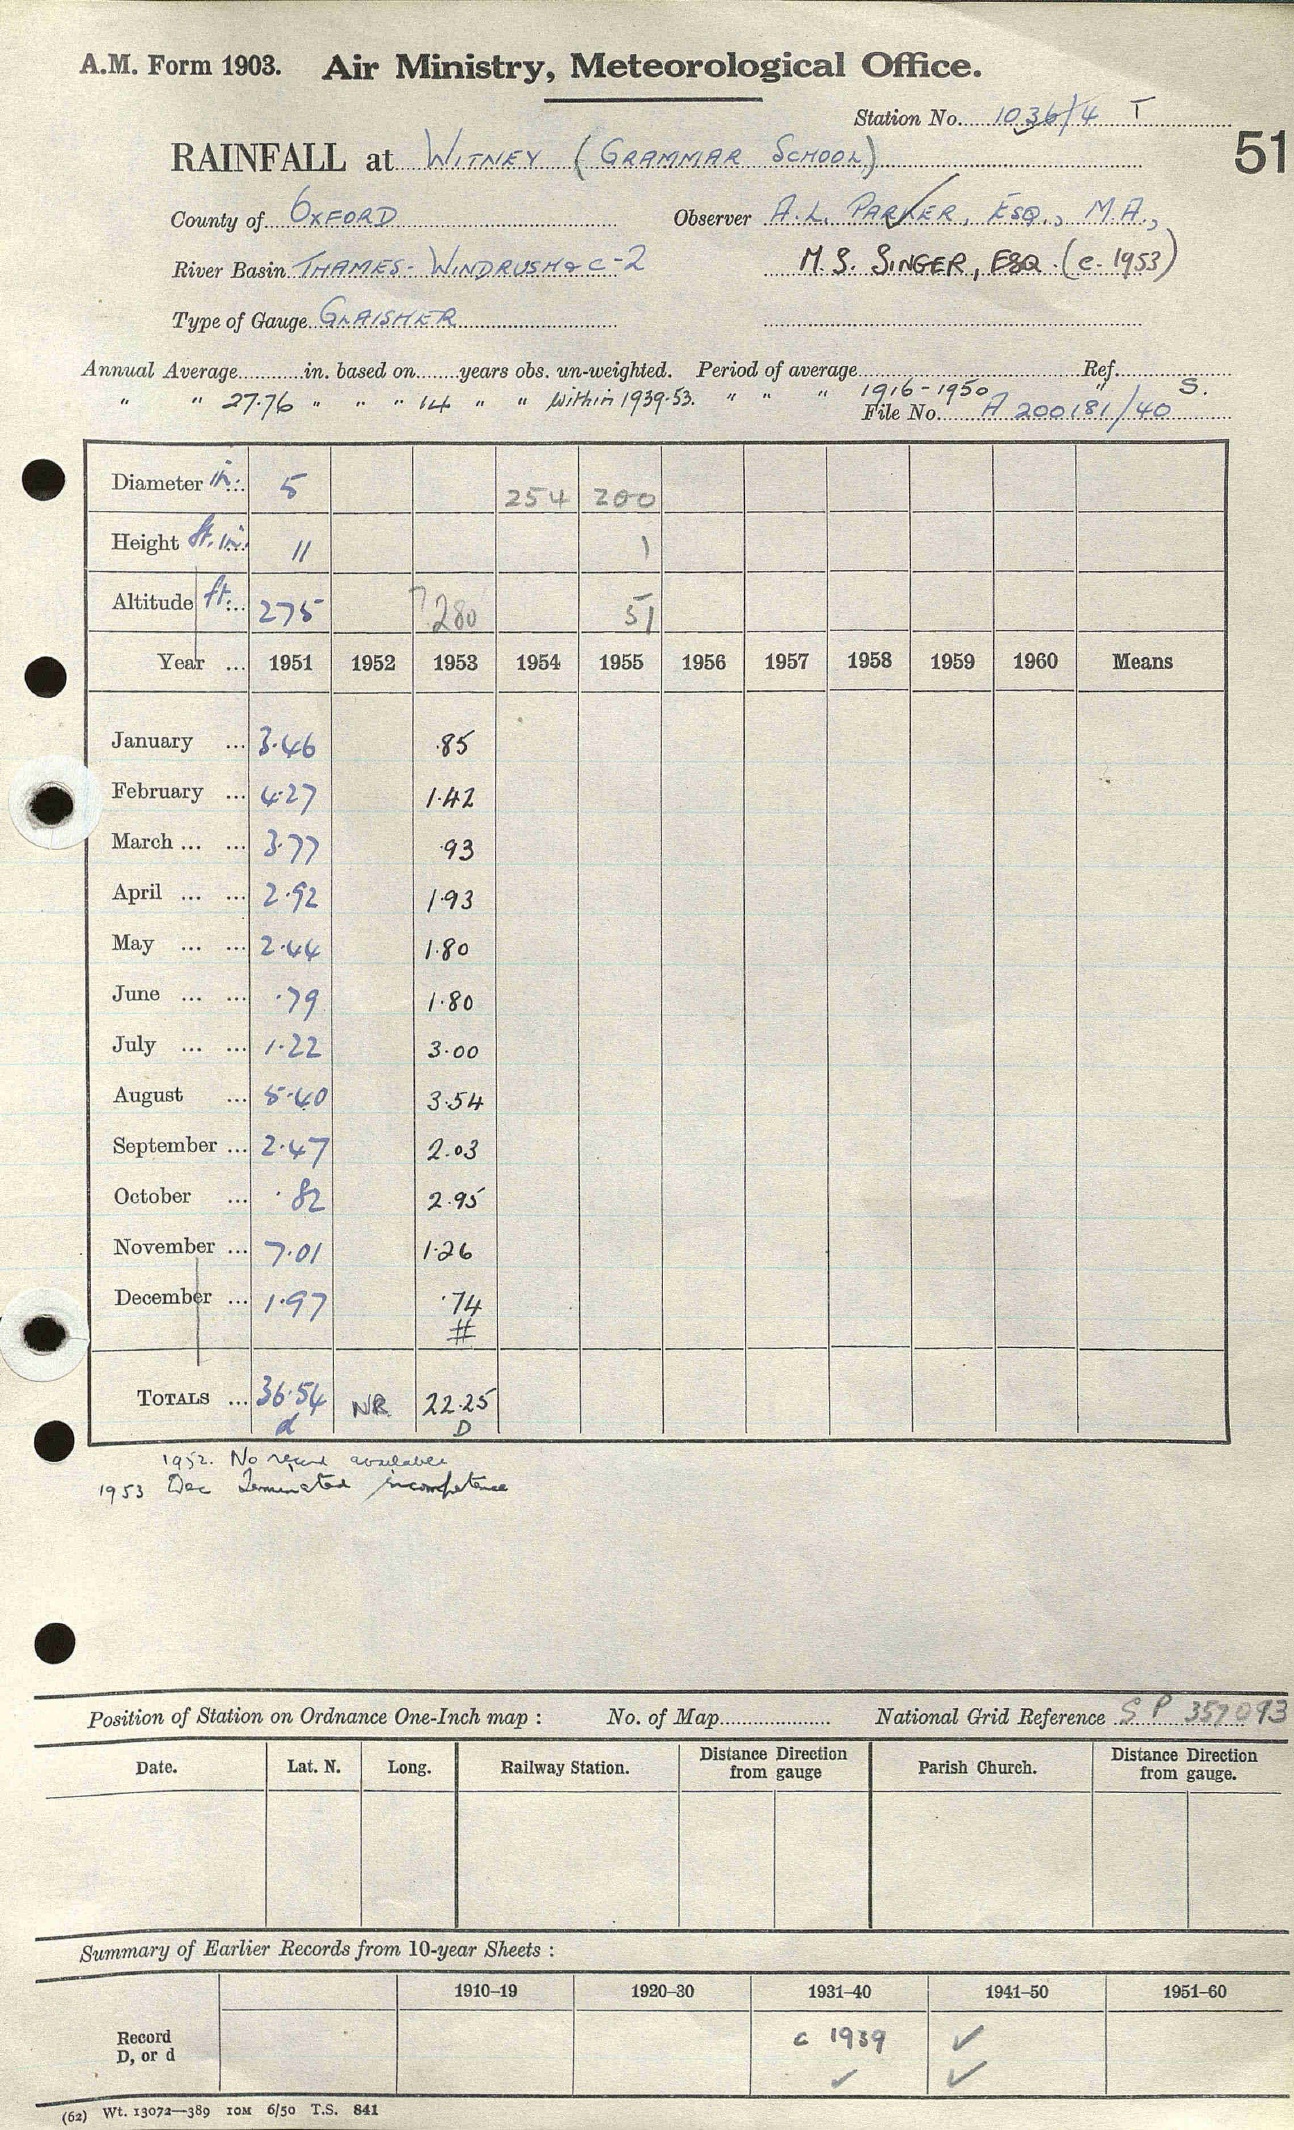 A.M. Form 1903. Air Ministry, Meteorological Office.
Station No. 1036/4 T
51
RAINFALL at WITNEY (GRAMMAR SCHOOL)
County of OXFORD Observer A.L. PARKER, ESQ., M.A.,
River Basin THAMES - WINDRUSH & C-2 M. S. SINGER, ESQ. (c. 1953)
Type of Gauge GLAISHER
Annual Average in. based on years obs. un-weighted. Period of average Ref.
" " 27.76 " " " 14 " " " within 1939-53. " " " 1916-1950 " S.
File No. A 200181/40
Diameter in. 5 254 200
Height ft. in. 11 1
Altitude ft. 275 ?280 51
Year ... 1951 1952 1953 1954 1955 1956 1957 1958 1959 1960 Means
January ... 3.46 .85
February ... 4.27 1.42
March ... ... 3.77 .93
April ... ... 2.92 1.93
May ... ... 2.44 1.80
June ... ... .79 1.80
July ... ... 1.22 3.00
August ... 5.40 3.54
September ... 2.47 2.03
October ... .82 2.95
November ... 7.01 1.26
December ... 1.97 .74
#
TOTALS ... 36.54 NR 22.25
d D
1952. No record available
1953 Dec Terminated incompetence
Position of Station on Ordnance One-Inch map : No. of Map National Grid Reference SP 357093
Date. Lat. N. Long. Railway Station. Distance Direction from gauge Parish Church. Distance Direction from gauge.
Summary of Earlier Records from 10-year Sheets :
1910–19 1920–30 1931–40 1941–50 1951–60
Record c 1939 ✓
D, or d ✓ ✓
(62) Wt. 13072—389 10M 6/50 T.S. 841